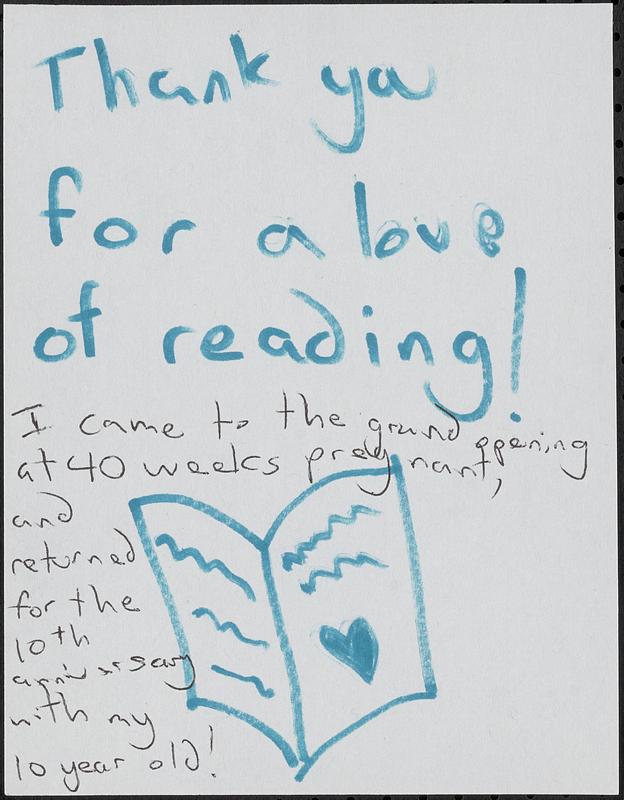 Thank you
for a love
of reading!
I came to the grand opening
at 40 weeks pregnant,
and
returned
for the
10th
anniversary
with my
10 year old!